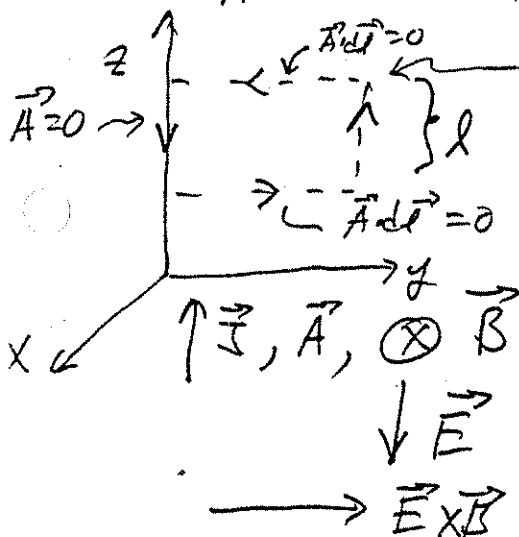 z
A⃗·dl⃗=0
A⃗=0
l
A⃗·dl⃗=0
y
x
J⃗, A⃗, ⊗ B⃗
E⃗
E⃗×B⃗